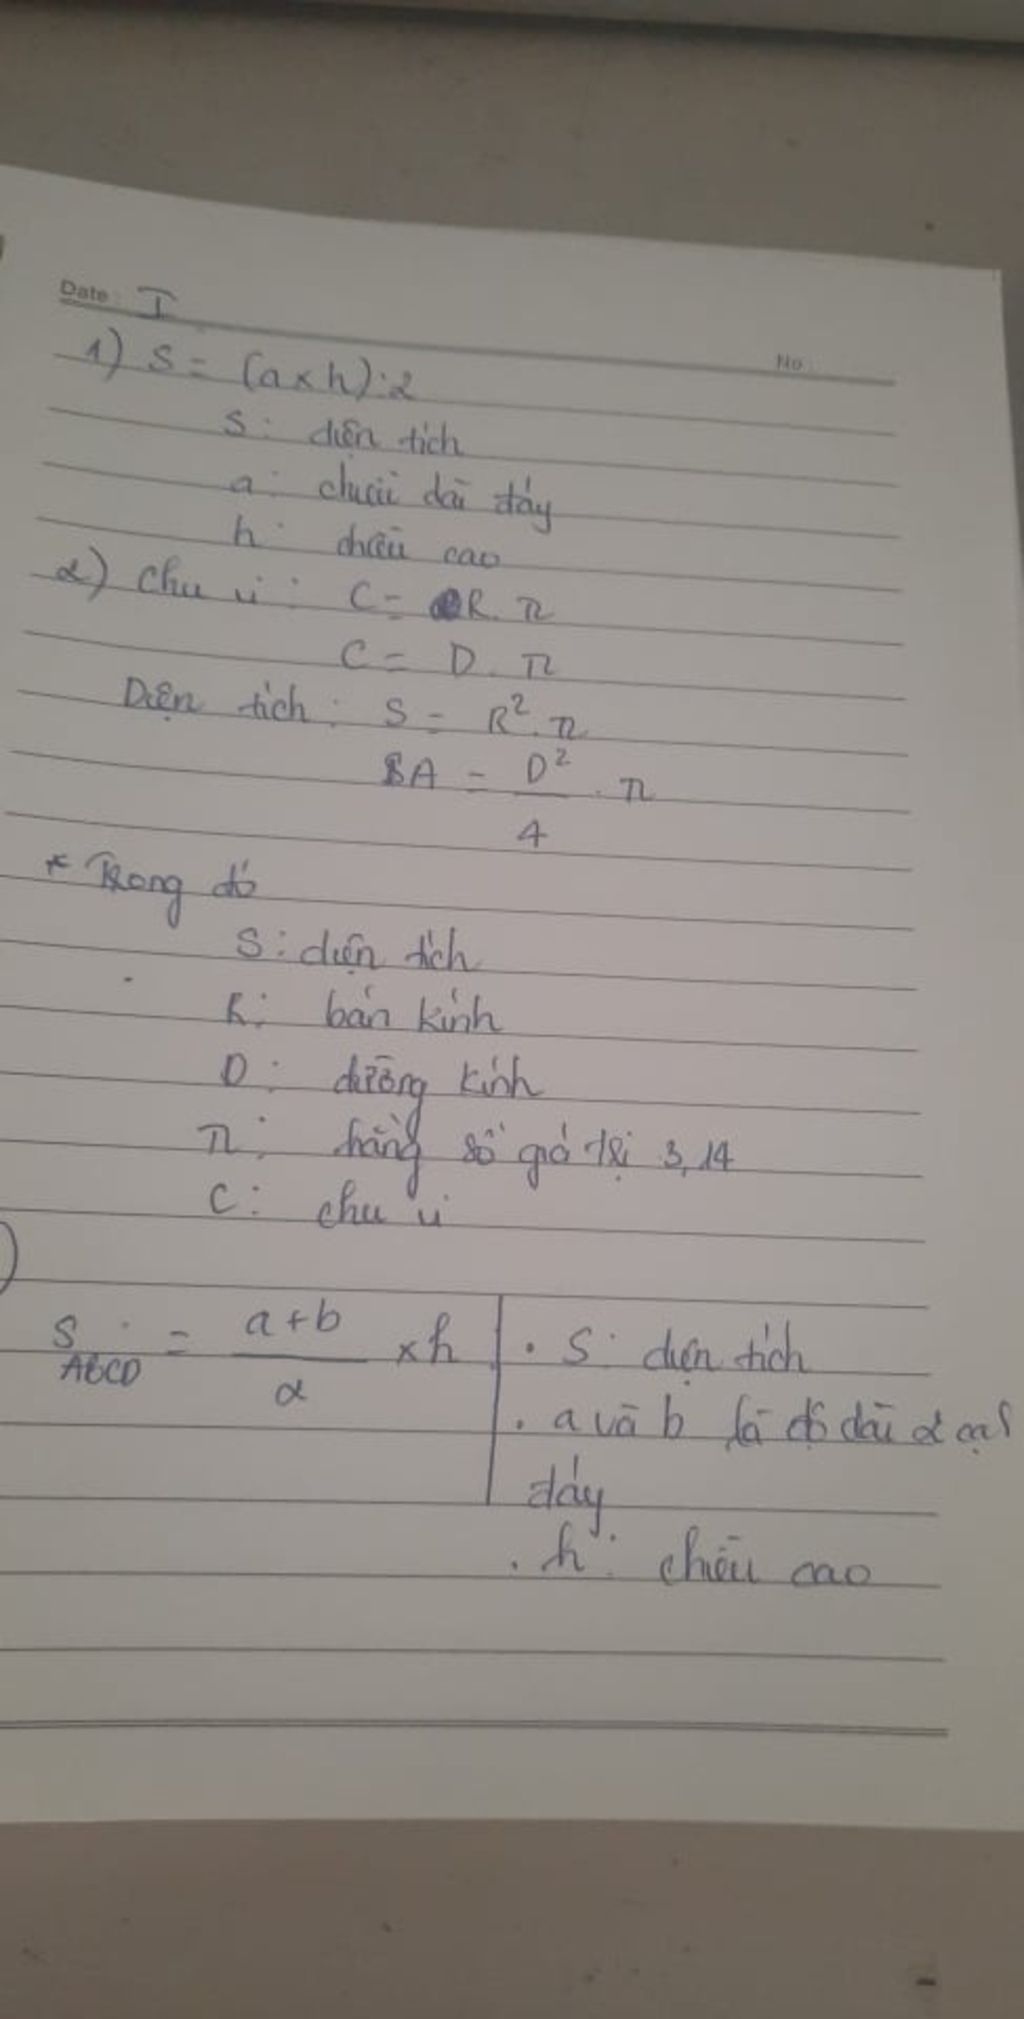 Date: I
No:
1) S = (a x h):2
S: diện tích
a: chiều dài đáy
h: chiều cao
2) Chu vi: C = R. π
C = D. π
Diện tích: S = R². π
A = D²/4 . π
* Trong đó
S: diện tích
R: bán kính
D: đường kính
π: hằng số giá trị 3,14
C: chu vi
)
S ABCD = a+b/2 x h
. S: diện tích
. a và b là độ dài 2 cạh
đáy
. h: chiều cao